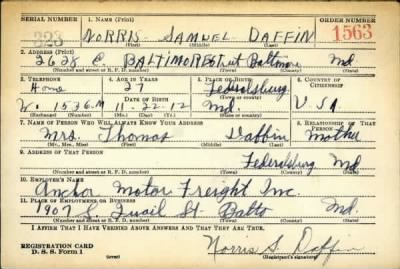 SERIAL NUMBER 1. NAME (Print) ORDER NUMBER
323 NORRIS SAMUEL DAFFIN 1563
(First) (Middle) (Last)
2. ADDRESS (Print)
2628 E. BALTIMORE Street Baltimore Md.
(Number and street or R. F. D. number) (Town) (County) (State)
3. TELEPHONE 4. AGE IN YEARS 5. PLACE OF BIRTH 6. COUNTRY OF CITIZENSHIP
Home 27 Federalsburg
DATE OF BIRTH (Town or county)
W. 1536-M 11-22-12 Md. U.S.A.
(Exchange) (Number) (Mo.) (Day) (Yr.) (State or country)
7. NAME OF PERSON WHO WILL ALWAYS KNOW YOUR ADDRESS 8. RELATIONSHIP OF THAT PERSON
Mrs. Thomas Daffin Mother
(Mr., Mrs., Miss) (First) (Middle) (Last)
9. ADDRESS OF THAT PERSON
Federalsburg Md
(Number and street or R. F. D. number) (Town) (County) (State)
10. EMPLOYER'S NAME
Anchor Motor Freight Inc.
11. PLACE OF EMPLOYMENT OR BUSINESS
1907 S. Quail St. Balto Md.
(Number and street or R. F. D. number) (Town) (County) (State)
I AFFIRM THAT I HAVE VERIFIED ABOVE ANSWERS AND THAT THEY ARE TRUE.
REGISTRATION CARD
D. S. S. Form 1
Norris S. Daffin
(Registrant's signature)